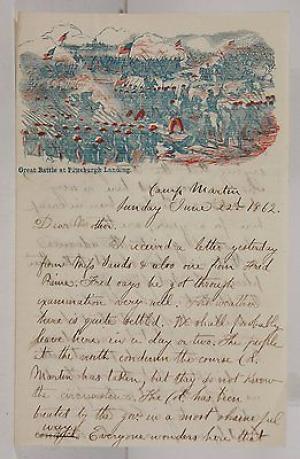 Great Battle at Pittsburgh Landing.
Camp Martin
Sunday June 22nd 1862.
Dear Mother.
I received a letter yesterday
from Miss Sands & also one from Fred
Fred says he got through
examination very well. The weather
here is quite settled. We shall probably
leave here in a day or two. The people
at the north condemn the course Col.
Martin has taken, but they do not know
the circumstances. The Col. has been
treated by the gov. in a most shameful
way. Everyone wonders here that